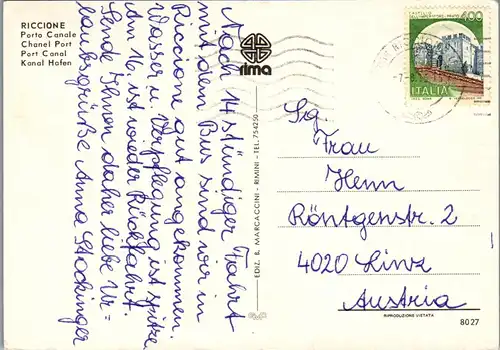 RICCIONE
Porto Canale
Chanel Port
Port Canal
Kanal Hafen
rima
Nach 14 stündiger Fahrt
mit dem Bus sind wir in
Riccione gut angekommen.
Wasser u. Verpflegung ist spitze.
Am 16. ist wieder Rückfahrt.
Sende Ihnen daher liebe Ur-
laubsgrüße Anna Stockinger
EDIZ. R. MARCACCINI - RIMINI - TEL. 754250
400
CASTELLO
DELL'IMPERATORE - PRATO
ITALIA
Sg.
Frau
Henn
Röntgenstr. 2
4020 Linz
Austria
RIPRODUZIONE VIETATA
8027